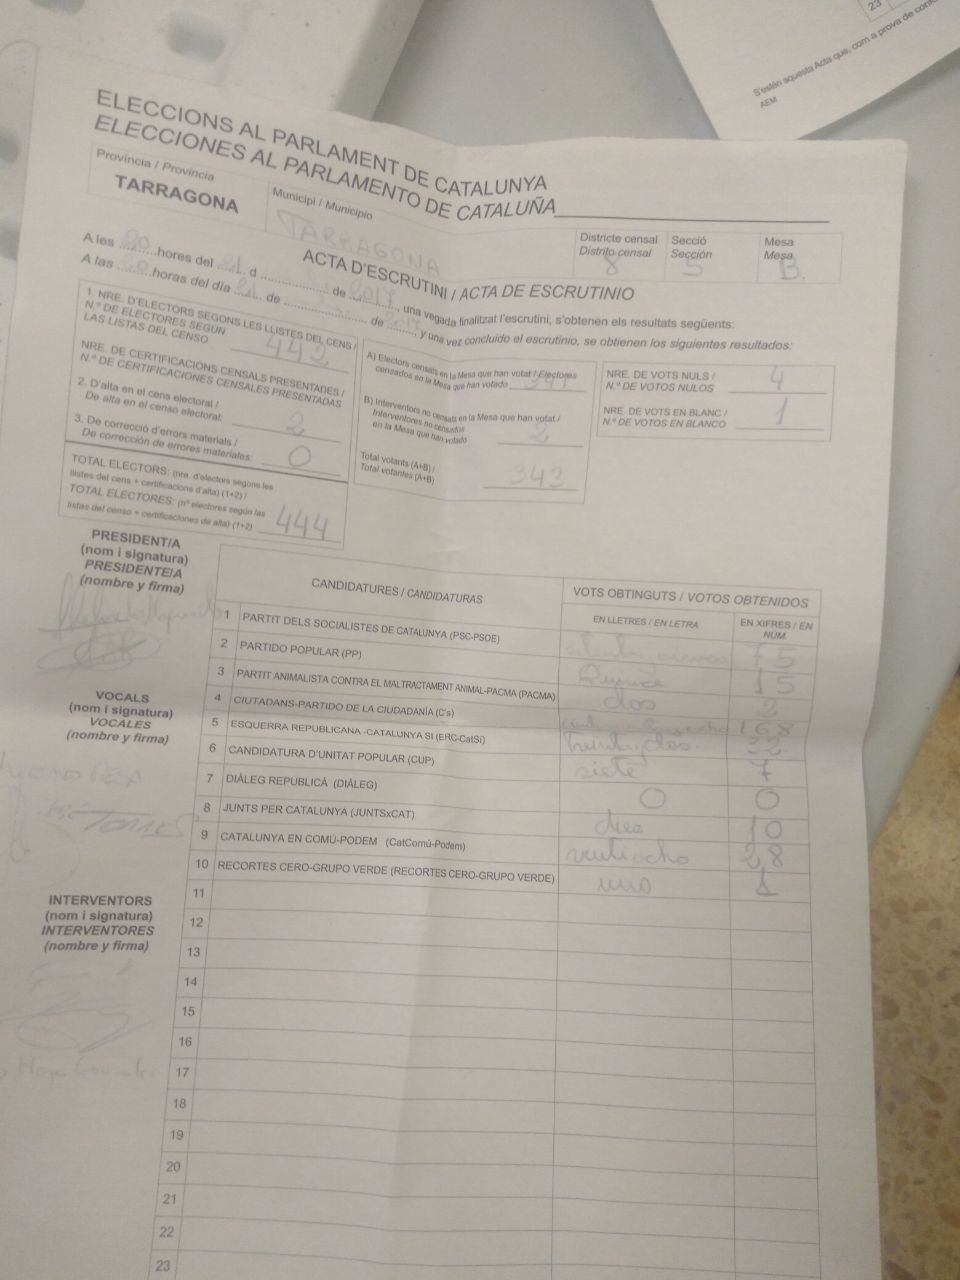 23
S'estén aquesta Acta que, com a prova de
AEM
ELECCIONS AL PARLAMENT DE CATALUNYA
ELECCIONES AL PARLAMENTO DE CATALUÑA
Província / Provincia
TARRAGONA
Municipi / Municipio
TARRAGONA
Districte censal
Distrito censal
8
Secció
Sección
5
Mesa
Mesa
B.
ACTA D'ESCRUTINI / ACTA DE ESCRUTINIO
A les 20 hores del 21 d ........ de 2017, una vegada finalitzat l'escrutini, s'obtenen els resultats següents:
A las 20 horas del día 21 de ........ de 2017, y una vez concluido el escrutinio, se obtienen los siguientes resultados:
1. NRE. D'ELECTORS SEGONS LES LLISTES DEL CENS /
N.º DE ELECTORES SEGÚN
LAS LISTAS DEL CENSO
442
NRE. DE CERTIFICACIONS CENSALS PRESENTADES /
N.º DE CERTIFICACIONES CENSALES PRESENTADAS
2. D'alta en el cens electoral /
De alta en el censo electoral:
2
3. De correcció d'errors materials /
De corrección de errores materiales:
0
TOTAL ELECTORS: (nre. d'electors segons les
llistes del cens + certificacions d'alta) (1+2) /
TOTAL ELECTORES: (nº electores según las
listas del censo + certificaciones de alta) (1+2)
444
A) Electors censats en la Mesa que han votat / Electores
censados en la Mesa que han votado
341
B) Interventors no censats en la Mesa que han votat /
Interventores no censados
en la Mesa que han votado
2
Total votants (A+B) /
Total votantes (A+B)
343
NRE. DE VOTS NULS /
N.º DE VOTOS NULOS
4
NRE. DE VOTS EN BLANC /
N.º DE VOTOS EN BLANCO
1
PRESIDENT/A
(nom i signatura)
PRESIDENTE/A
(nombre y firma)
VOCALS
(nom i signatura)
VOCALES
(nombre y firma)
TORRES
INTERVENTORS
(nom i signatura)
INTERVENTORES
(nombre y firma)
CANDIDATURES / CANDIDATURAS
VOTS OBTINGUTS / VOTOS OBTENIDOS
EN LLETRES / EN LETRA
EN XIFRES / EN NÚM.
1 PARTIT DELS SOCIALISTES DE CATALUNYA (PSC-PSOE) setenta y cinco 75
2 PARTIDO POPULAR (PP) Quince 15
3 PARTIT ANIMALISTA CONTRA EL MALTRACTAMENT ANIMAL-PACMA (PACMA) dos 2
4 CIUTADANS-PARTIDO DE LA CIUDADANÍA (C's) 168
5 ESQUERRA REPUBLICANA -CATALUNYA SI (ERC-CatSí) treinta y dos 32
6 CANDIDATURA D'UNITAT POPULAR (CUP) siete 7
7 DIÀLEG REPUBLICÀ (DIÀLEG) 0 0
8 JUNTS PER CATALUNYA (JUNTSxCAT) diez 10
9 CATALUNYA EN COMÚ-PODEM (CatComú-Podem) veintiocho 28
10 RECORTES CERO-GRUPO VERDE (RECORTES CERO-GRUPO VERDE) uno 1
11
12
13
14
15
16
17
18
19
20
21
22
23